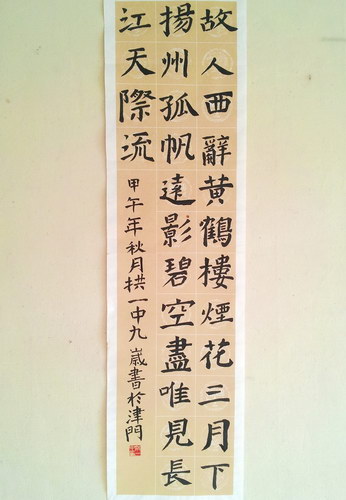 故人西辭黄鶴樓煙花三月下
揚州孤帆遠影碧空盡唯見長
江天際流
甲午年秋月拱一中九歲書於津門